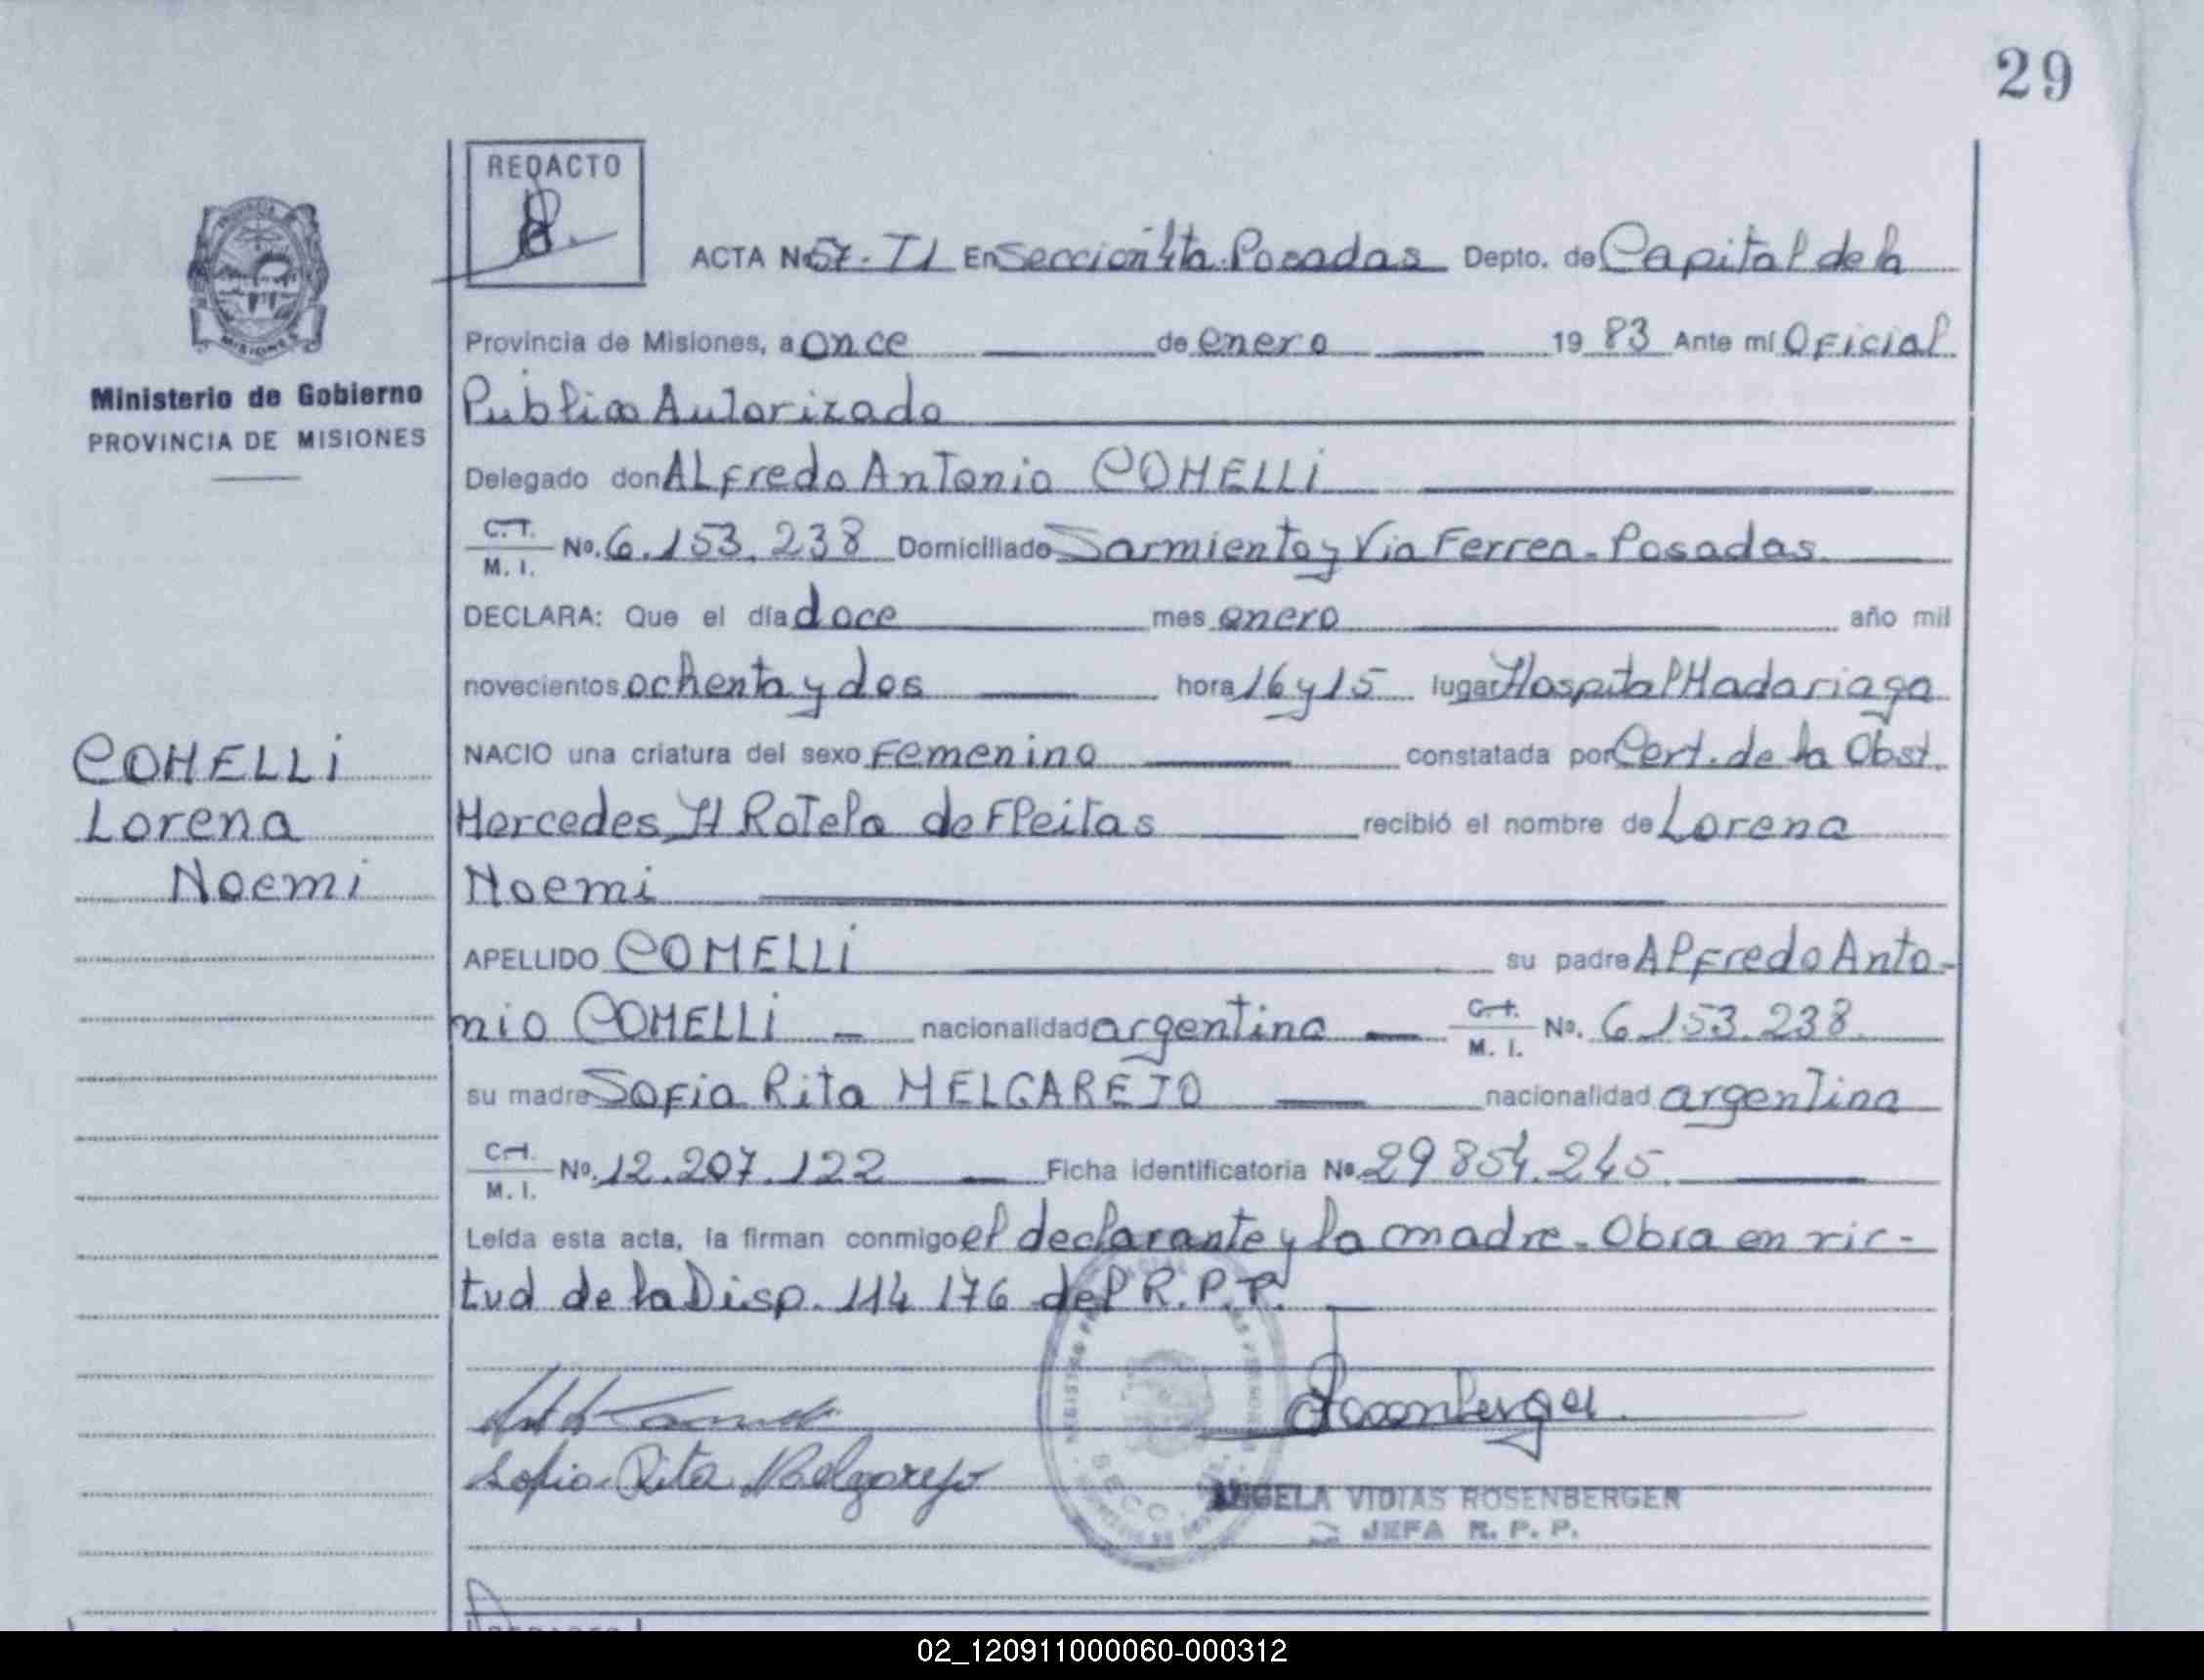 29
REDACTO
ACTA Nº 57 - T1 En Seccion 4ta. Posadas Depto. de Capital de la
Provincia de Misiones, a once de enero 19 83 Ante mí Oficial
Ministerio de Gobierno
PROVINCIA DE MISIONES
Publico Autorizado
Delegado don ALfredo Antonio COMELLi
C.I. M. I. No. 6.153.238 Domiciliado Sarmiento y Via Ferrea - Posadas
DECLARA: Que el día doce mes enero año mil
novecientos ochenta y dos hora 16 y 15 lugar Hospital Madariaga
COMELLi
Lorena
Noemi
NACIO una criatura del sexo Femenino constatada por Cert. de la Obst.
Mercedes H Rotela de Fleitas recibió el nombre de Lorena
Noemi
APELLIDO COMELLi su padre Alfredo Anto-
nio COMELLi nacionalidad argentina C.I. M. I. No. 6 153.238
su madre Sofia Rita MELGAREJO nacionalidad argentina
C.I. M. I. No. 12.207.122 Ficha identificatoria No. 29 854.245.
Leída esta acta, la firman conmigo el declarante y la madre - Obra en vir-
tud de la Disp. 114 176 del R.P.P.
Sofia Rita Melgarejo
Rosenberger
ANGELA VIDIAS ROSENBERGER
JEFA R. P. P.
02_120911000060-000312